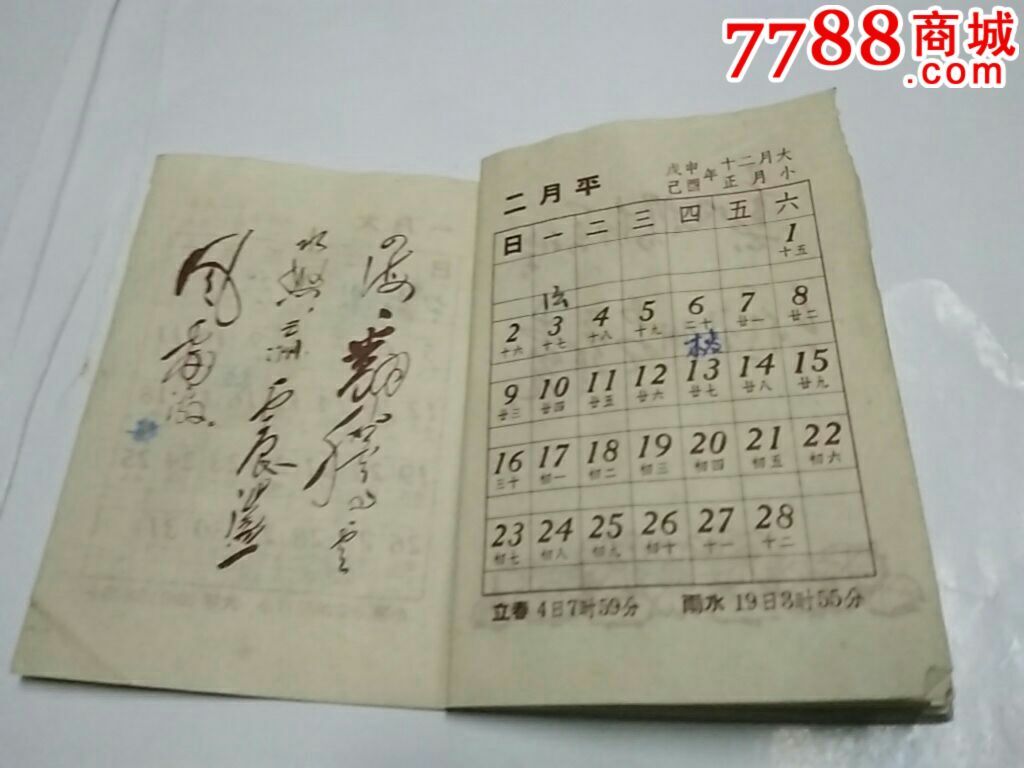 7788商城
.com
四海翻腾云
水怒五洲震荡
风雷激。
二月平
戊申年十二月大
己酉年正月小
日 一 二 三 四 五 六
1
十五
2 3 4 5 6 7 8
十六 十七 十八 十九 二十 廿一 廿二
9 10 11 12 13 14 15
廿三 廿四 廿五 廿六 廿七 廿八 廿九
16 17 18 19 20 21 22
三十 初一 初二 初三 初四 初五 初六
23 24 25 26 27 28
初七 初八 初九 初十 十一 十二
立春 4日7时59分 雨水 19日3时55分